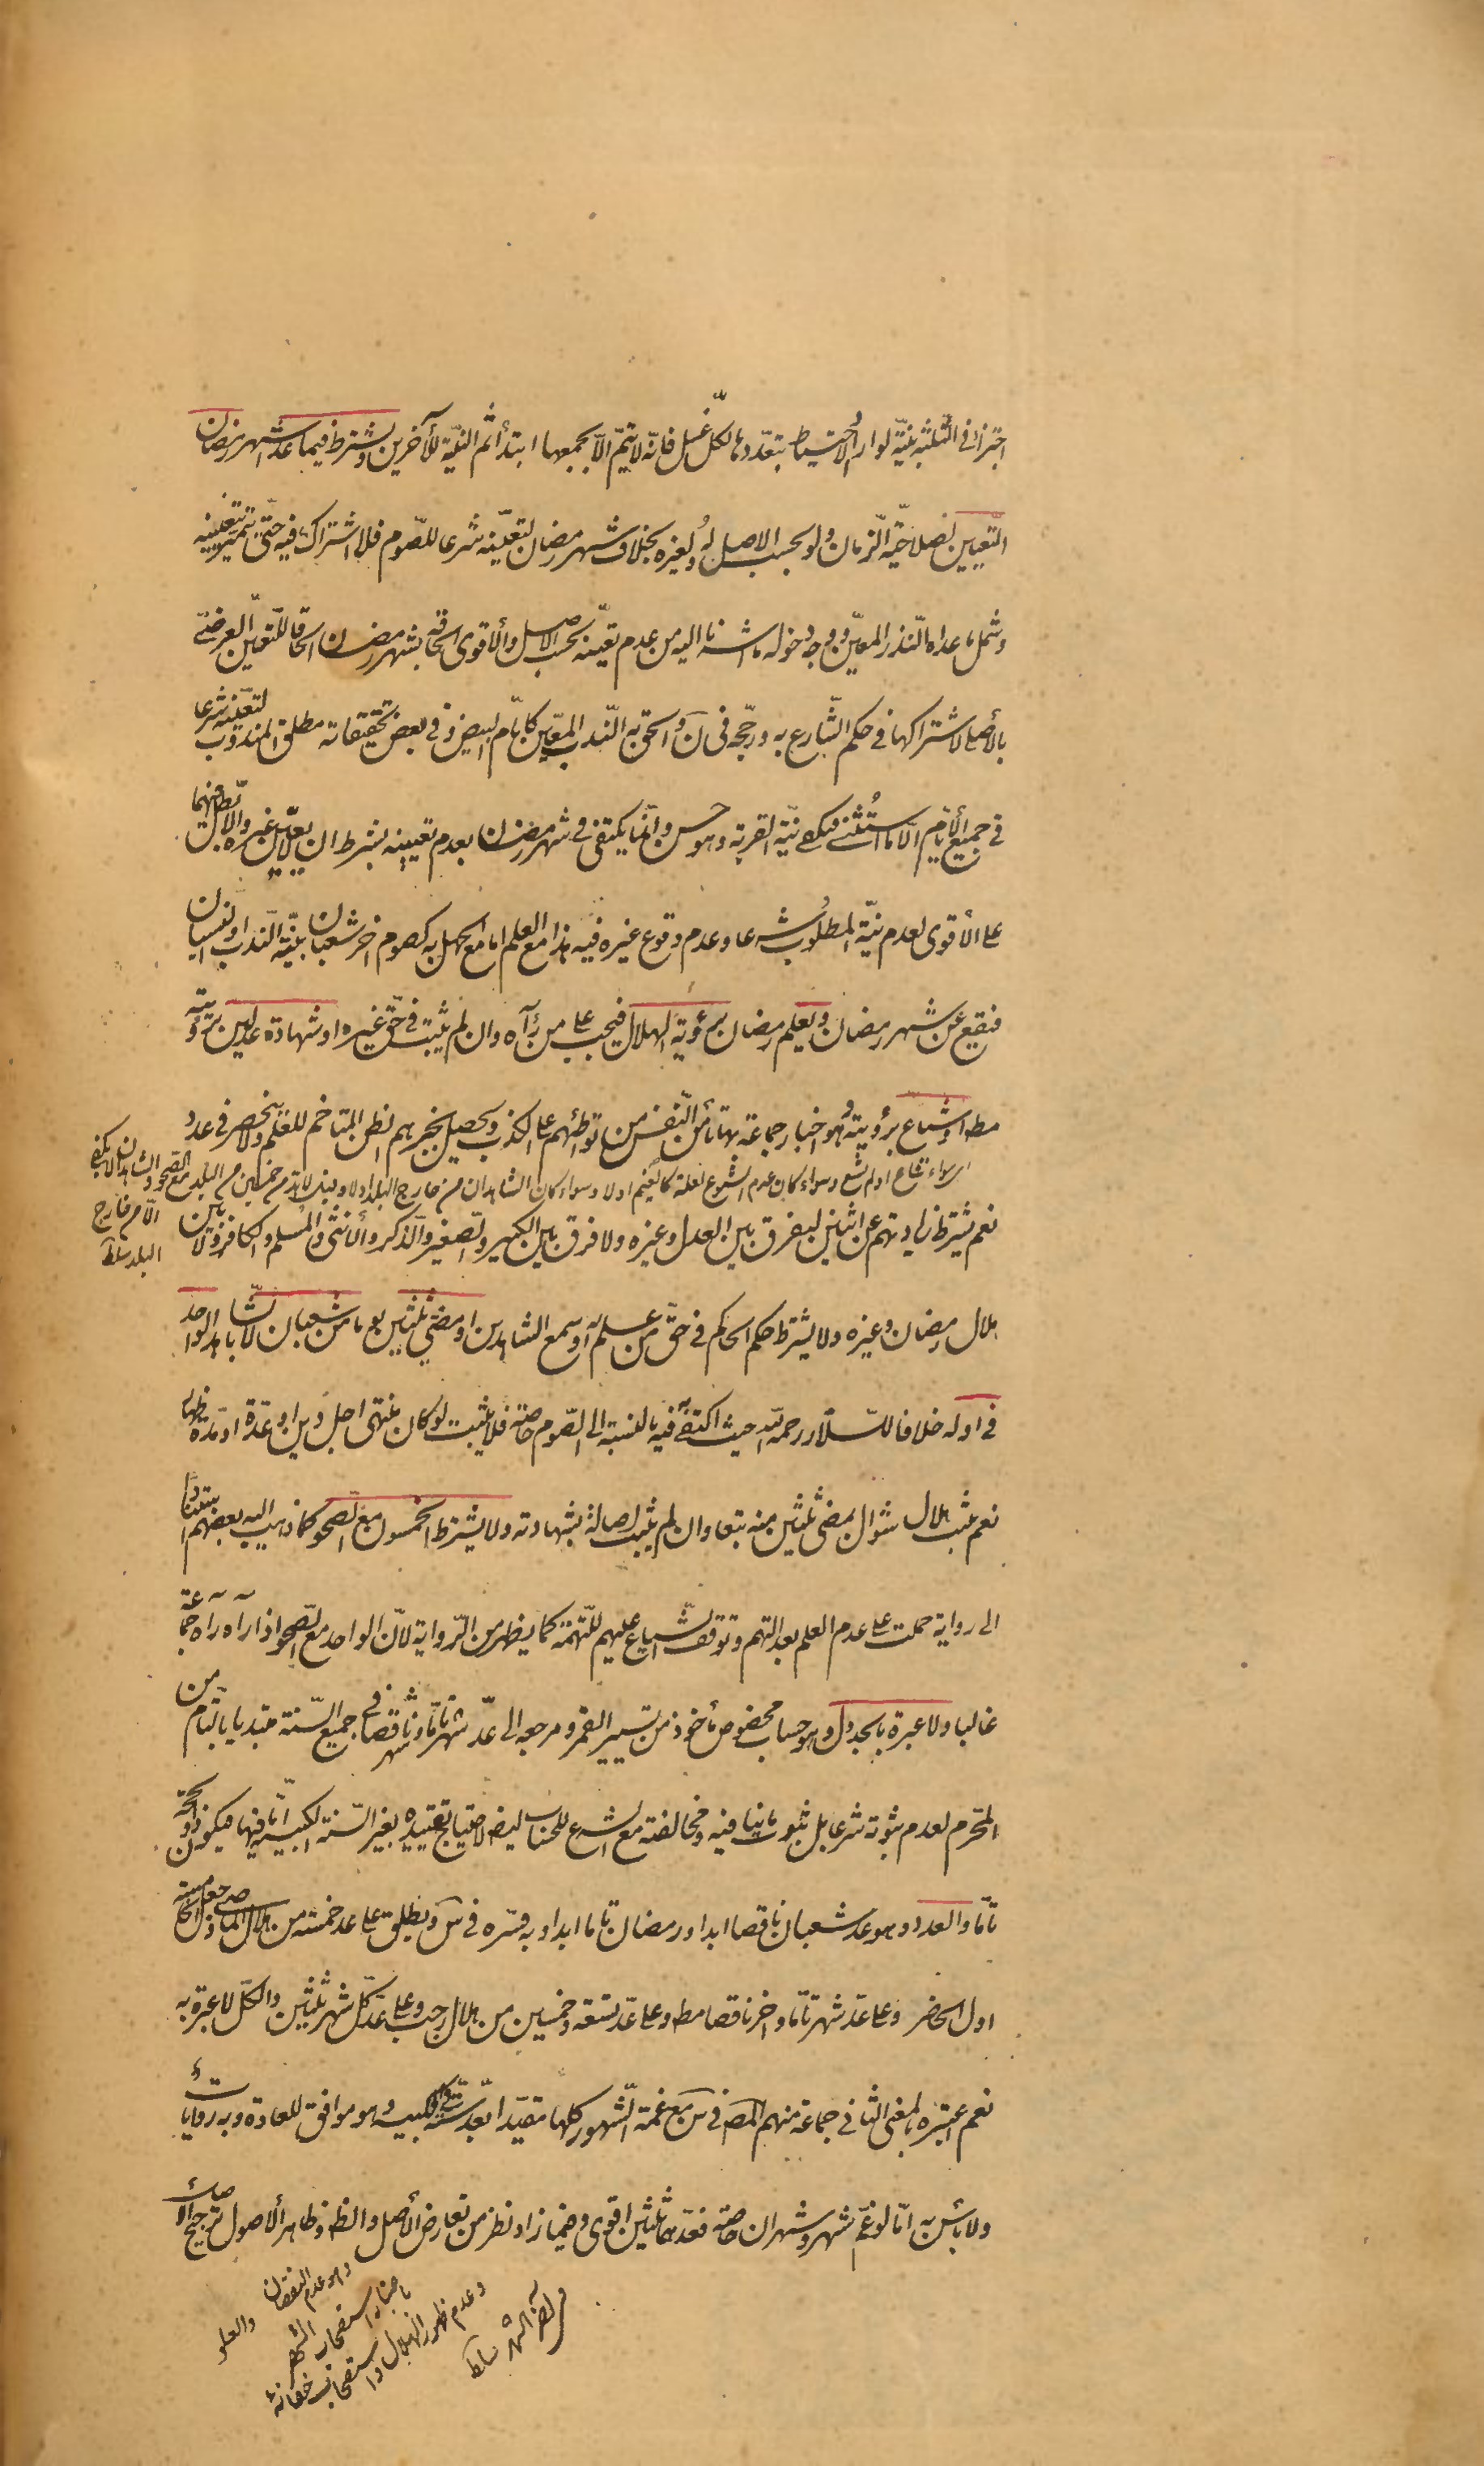 اجتزأ في الثلثة بنيّة لو اراد الاحتياط بتعدّدها لكلّ غسل فانّه لا يتمّ الّا بجمعها ابتدأ ثم النيّة للآخرين ويشترط فيما عدا شهر رمضان
التّعيين لصلاحيّة الزمان ولو بحسب الاصل له ولغيره بخلاف شهر رمضان لتعيّنه شرعا للصّوم فلا اشتراك فيه حتّى يتميّز بتعيينه
وشمل ما عداه النّذر المعيّن ووجه دخوله ما اشرنا اليه من عدم تعيّنه بحسب الاصل والأقوى الحاقه بشهر رمضان الحاقا للتّعيّن العرضيّ
بالأصلي لاشتراكهما في حكم الشّارع به ورجّحه في ن والحق به النّدب المعيّن كايّام البيض وفي بعض تحقيقاته مطلق المندوب لتعيّنه شرعا
في جميع الأيّام الّا ما استُثني فيكفي نيّة القربة وهو حسن وانّما يكتفى في شهر رمضان بعدم تعيينه بشرط ان لا يعيّن غيره والّا بطل فيهما
على الأقوى لعدم نيّة المطلوب شرعا وعدم وقوع غيره فيه هذا مع العلم اما مع الجهل به كصوم اخر شعبان بنيّة النّدب او النسيان
فيقع عن شهر رمضان ويعلم رمضان برؤية الهلال فيجب على من رآه وان لم يثبت في حقّ غيره او شهادة عدلين برؤيته
مط او شياع برؤيته وهو اخبار جماعة بها تأمن النّفس من تواطئهم على الكذب ويحصل بخبرهم الظن المتاخم للعلم ولا ينحصر في عدد
اي سواء شاع او لم يشع وسواء كان عدم الشيوع لعلة كالغيم او لا وسواء كان الشاهدان من خارج البلد او لا وقيل لا بد من خمسين من البلد مع الصحو والشاهدان لا يكفيان
الّا من خارج
البلد سلط
نعم يشترط زيادتهم عن اثنين ليفرق بين العدل وغيره ولا فرق بين الكبير والصغير والذكر والأنثى والمسلم والكافر ولا بين
هلال رمضان وغيره ولا يشترط حكم الحاكم في حقّ من علم به او سمع الشاهدين او مضيّ ثلثين يوما من شعبان لا بالشّاهد الواحد
في اوله خلافا للسّلّار رحمه الله حيث اكتفى به فيه بالنسبة الى الصّوم خاصة فلا يثبت لو كان منتهى اجل دين او عدّة او مدّة ظهار
نعم يثبت هلال شوال بمضيّ ثلثين منه تبعا وان لم يثبت اصالة بشهادته ولا يشترط الخمسون مع الصّحو كما ذهب اليه بعضهم استنادا
الى رواية حملت على عدم العلم بعدالتهم وتوقف الشياع عليهم للتّهمة كما يظهر من الرّواية لانّ الواحد مع الصّحو اذا رآه رآه جماعة
غالبا ولا عبرة بالجدول وهو حساب مخصوص مأخوذ من تسيير القمر ومرجعه الى عدّ شهر تامّا وشهر ناقصا في جميع السّنة مبتديا بالتّام من
المحرّم لعدم ثبوته شرعا بل ثبوت ما ينافيه ومخالفته مع الشرع للحساب ايضا لاحتياج تقييده بغير السّنة الكبيسة امّا فيها فيكون ذو الحجّة
تامّا والعدد وهو عد شعبان ناقصا ابدا ورمضان تاما ابدا وبه فسّره في س ويطلق على عد خمسة من هلال الماضي وجعل الخامس
اول الحاضر وعلى عدّ شهر تامّا واخر ناقصا مط وعلى عدّ تسعة وخمسين من هلال رجب وعلى عدّ كلّ شهر ثلثين والكلّ لا عبرة به
نعم اعتبره بالمعنى الثاني جماعة منهم المص في س مع غمة الشّهور كلها مقيّدا بعدّ ستّة في الكبيسه وهو موافق للعادة وبه روايات
ولا بأس به امّا لو غمّ شهر وشهران خاصة فعدّهما ثلثين اقوى وفيما زاد نظر من تعارض الأصل والظ وظاهر الأصول ترجيح الأصل
وهو عدم النقصان
باعتبار استصحاب الشهر
وعدم ظهور الهلال واستصحاب خفائه
والعلو
سلط